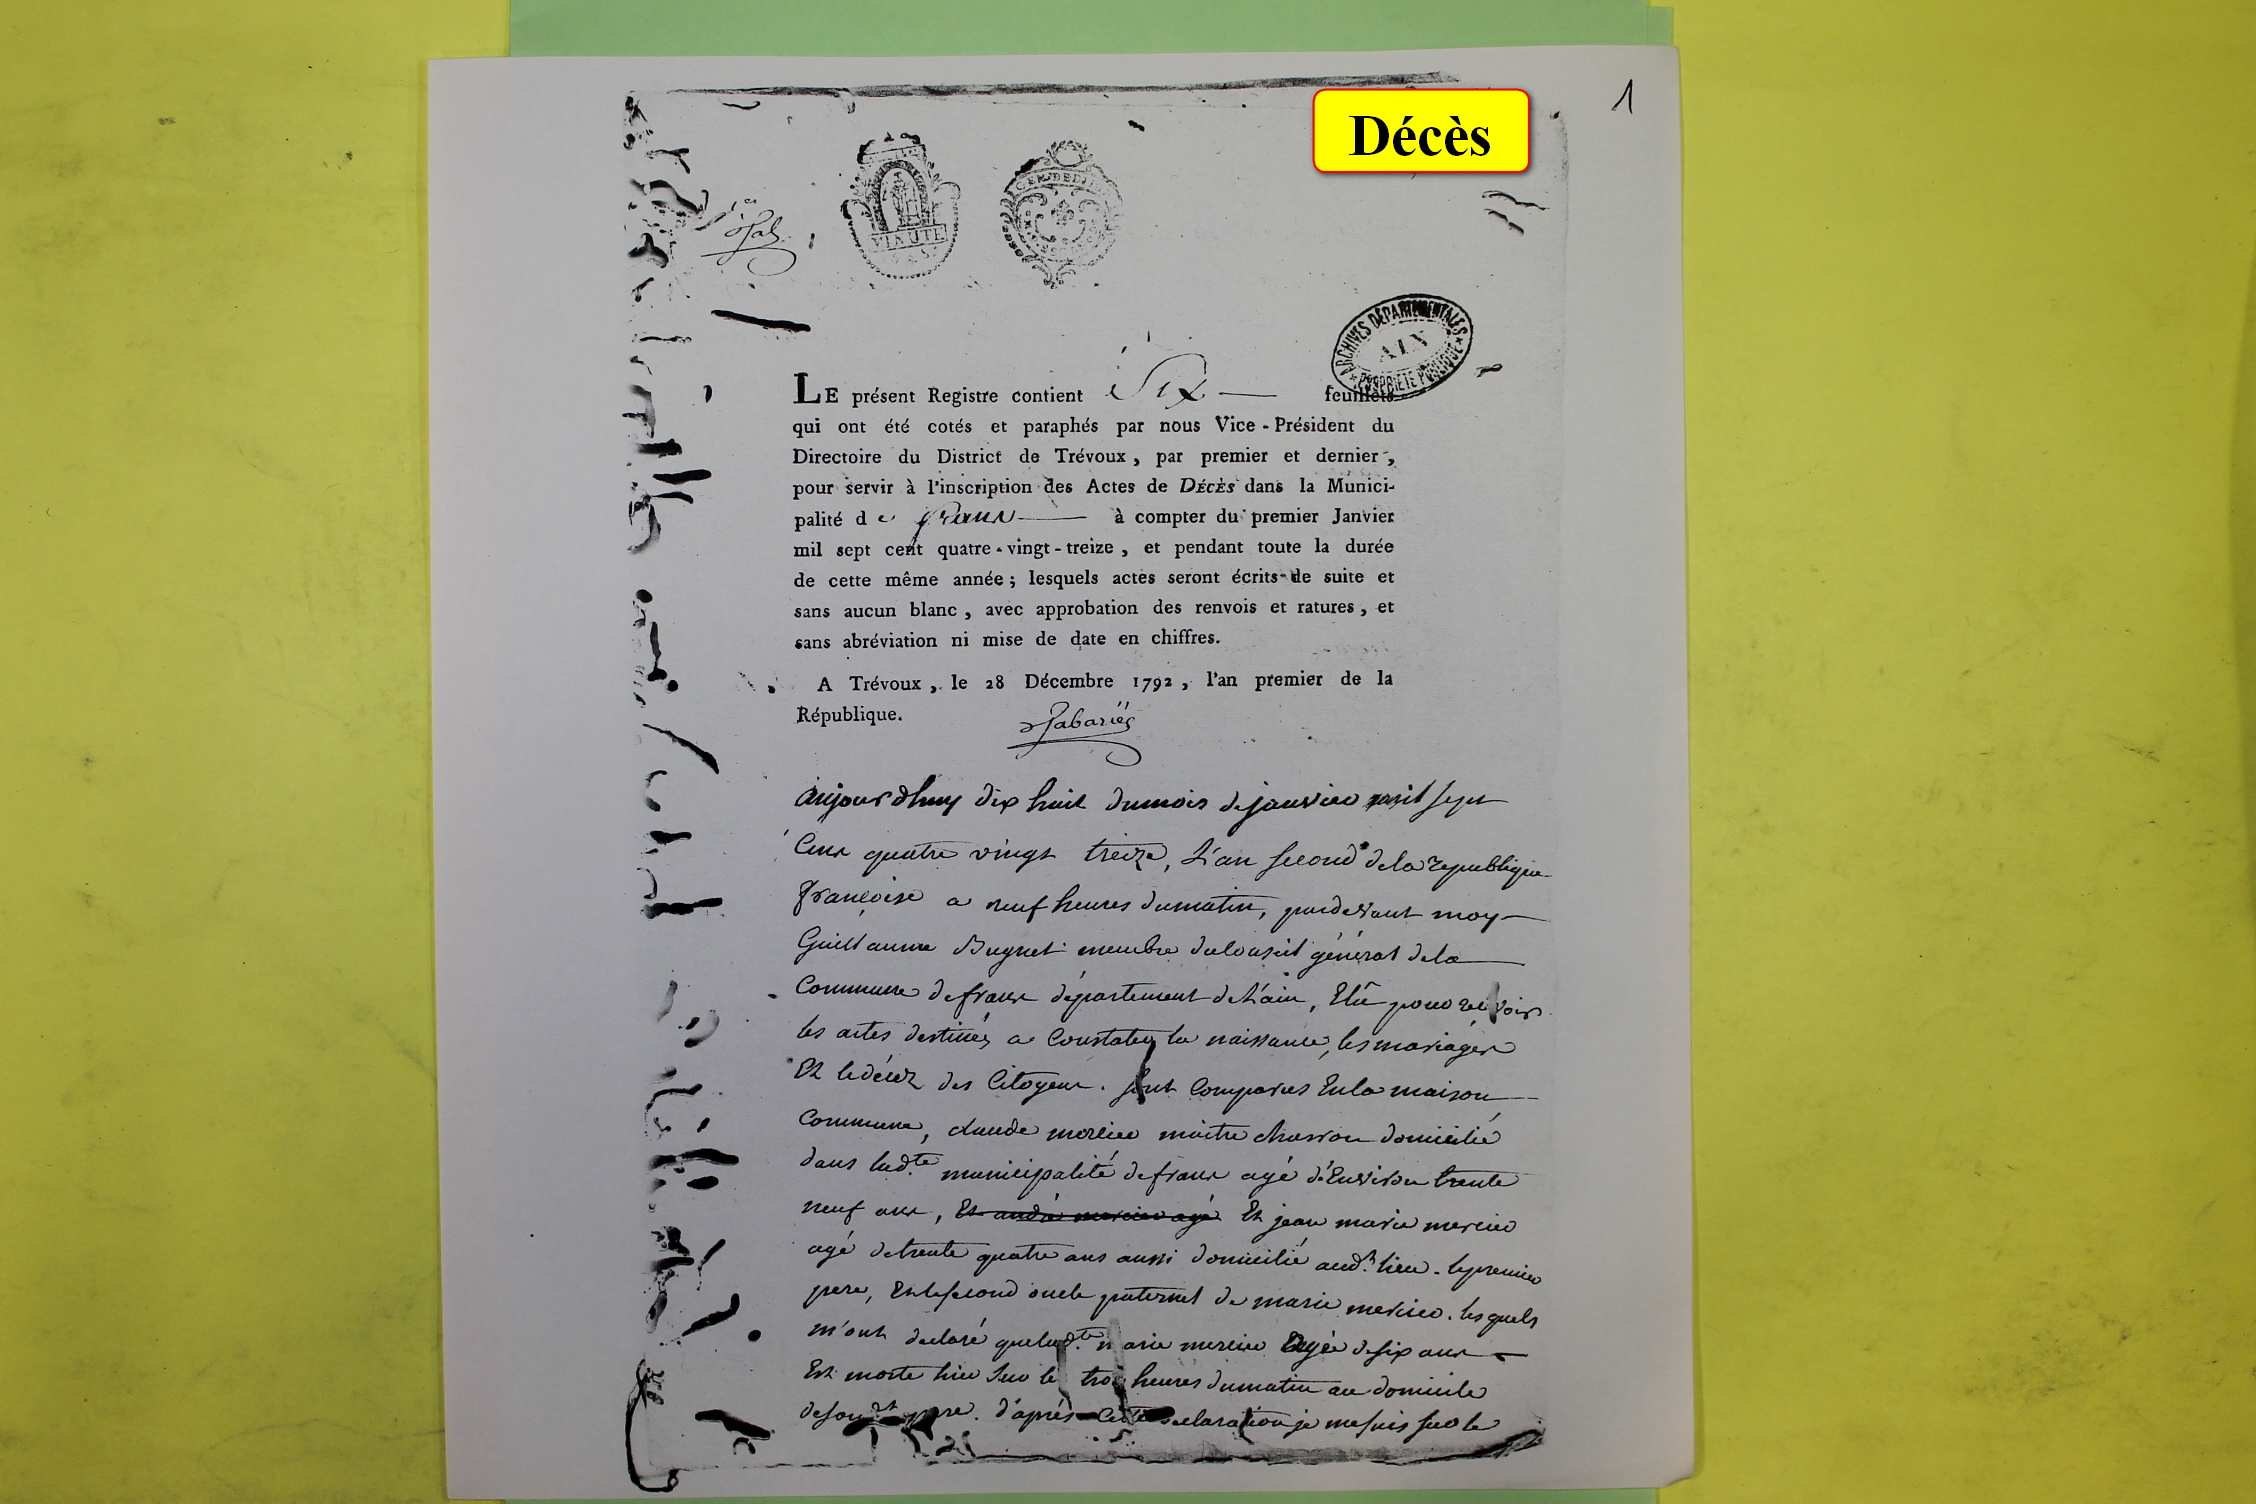 Décès
1
MINUTE
GEN. DE DIJ
ARCHIVES DÉPARTEMENTALES
AIN
PROPRIÉTÉ PUBLIQUE
LE présent Registre contient Six feuillets
qui ont été cotés et paraphés par nous Vice-Président du
Directoire du District de Trévoux, par premier et dernier,
pour servir à l'inscription des Actes de DÉCÈS dans la Munici-
palité de frans à compter du premier Janvier
mil sept cent quatre-vingt-treize, et pendant toute la durée
de cette même année; lesquels actes seront écrits de suite et
sans aucun blanc, avec approbation des renvois et ratures, et
sans abréviation ni mise de date en chiffres.
A Trévoux, le 28 Décembre 1792, l'an premier de la
République.
aujourdhuy dix huit du mois de janvier mil sept
Cent quatre vingt treize, L'an second de la republique
françoise a neuf heures du matin, pardevant moy
Guillaume Bugnet membre du Conseil général de la
Commune de frans département de L'ain, Elû pour recevoir
les actes destinés a Constater la naissance, les mariages
Et le décez des Citoyens. sont Comparus En la maison
Commune, claude mercier maitre charron domicilié
dans lad.te municipalité de frans agé d'Environ trente
neuf ans, Et andré mercier agé Et jean marie mercier
agé de trente quatre ans aussi domicilié aud.t lieu. le premier
pere, Et le second oncle paternel de marie mercier. lesquels
m'ont declaré que lad.te marie mercier agée de six ans
Est morte hier sur les trois heures du matin au domicile
de son dt pere. d'après Cette declaration je me suis sur le